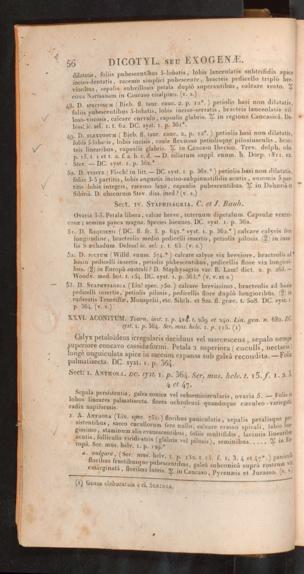 56 DICOTYL. SEU EXOGENÆ.
dilatatis, foliis pubescentibus 5-lobatis, lobis lanceolatis subtrifidis apice
inciso-dentatis, racemo simplici pubescente, bracteis pedicello triplo bre-
vioribus, sepalis subvillosis petala duplo superantibus, calcare recto. ♃
circa Narzanam in Caucaso cisalpino. (v. s.)
48. D. SPECIOSUM ( Bieb. fl. taur. cauc. 2. p. 12*. ) petiolis basi non dilatatis,
foliis pubescentibus 5-lobatis, lobis inciso-serratis, bracteis longioribus vil-
loso-viscosis, calcare curvulo, capsulis glabris. ♃ in regione Caucasicà. De-
less! ic. sel. 1. t. 62. DC. syst. 1. p. 361*.
49. D. FLEXUOSUM ( Bieb. fl. taur. cauc. 2. p. 12*. ) petiolis basi non dilatatis,
foliis 5-lobatis, lobis incisis, caule flexuoso petiolisque pilosiusculis, brac-
teis linearibus, capsulis glabris. ♃ in Caucaso Iberico. Trev. delph. ob.
— DC. syst. 1. p. 362.*
50. D. VISCIDE
foliis 3-5 partitis, lobis angustis inciso-subpinnatifidis acutis,
tiis lobis integris, racemo laxo, capsulis pubescentibus. ♃ in Dahuriâ
Sibiriâ. D. obscurum Stev. diss. med.? (v. s.)
SECT. IV. STAPHISAGRIA. C. et J. Bauh.
Ovaria 3-5. Petala libera, calcar breve, internum dipetalum. Capsulæ ventri-
cosæ; semina pauca magna. Species biennes. DC. syst. 1. p. 362.
51. D. REQUIENII ( DC. fl. fr. 5. p. 642.* syst. 1. p. 362.* ) calcare calycis fere
longitudine, bracteolis medio pedicelli insertis, petiolis pilosis. ② in insu-
lis Stœchadum. Deless! ic. sel. 1. t. 63. (v. s.)
52. D. PICTUM (Willd. enum. 574.* ) calcare calyce vix breviore, bracteolis ad
basin pedicelli insertis, petiolis pubescentibus, pedicellis flore vix longiori-
bus. ② in Europâ australi? D. Staphysagria var. B. Lam! dict. 2. p. 265. —
Woodv. med. bot. t. 154. DC. syst. 1. p. 363.* (v. v. et s.)
53. D. STAPHYSAGRIA ( Lin! spec. 750.) calcare brevissimo, bracteolis ad basin
pedicelli insertis, petiolis pilosis, pedicellis flore duplo longioribus. ② in
ruderatis Teneriffæ, Monspelii, etc. Sibth. et Sm. fl. græc. t. 508. DC. syst. 1.
p. 364. (v. v.)
XXVI. ACONITUM. Tourn. inst. 1. p. 424. t. 239 et 240. Lin. gen. n. 682. DC.
syst. 1. p. 364. Ser. mus. helv. 1. p. 128. (1)
Calyx petaloideus irregularis deciduus vel marcescens, sepalo nempè
superiore concavo cassidæformi. Petala 2 superiora ( cuculli, nectaria )
longè unguiculata apice in saccum expansa sub galeâ recondita. — Folia
palmatisecta. DC. syst. 1. p. 364.
SECT. I. ANTHORA. DC. syst. 1. p. 364. Ser. mus. helv. t. 15. f. 1. 2. 3.
4 et 47.
Sepala persistentia, galea conica vel subsemicircularis, ovaria 5. — Folia in
lobos lineares palmatisecta, flores ochroleuci quandoque cæruleo-variegati,
radix napiformis.
1. A. ANTHORA ( Lin. spec. 751.) floribus paniculatis, sepalis petalisque per-
sistentibus, sacco cucullorum fere nullo, calcare crasso spirali, labio lon-
gissimo, staminum alis evanescentibus, foliis multifidis, laciniis linearibus
acutis, folliculis viridiatis (glabris vel pilosis), seminibus . . . . ♃ in Eu-
ropâ. Ser. mus. helv. 1. p. 129.*
α. vulgare, (Ser. mus. helv. 1. p. 130. t. 15. f. 1. 3. 4 et 47*.) paniculâ
floribus fructibusque pubescentibus, galeâ subconicâ suprà rostrum vix
emarginatâ, floribus luteis. ♃ in Caucaso, Pyrenæis et Jurasso. (v. v.)
(1) Genus elaboratum a cl. SERINGE.